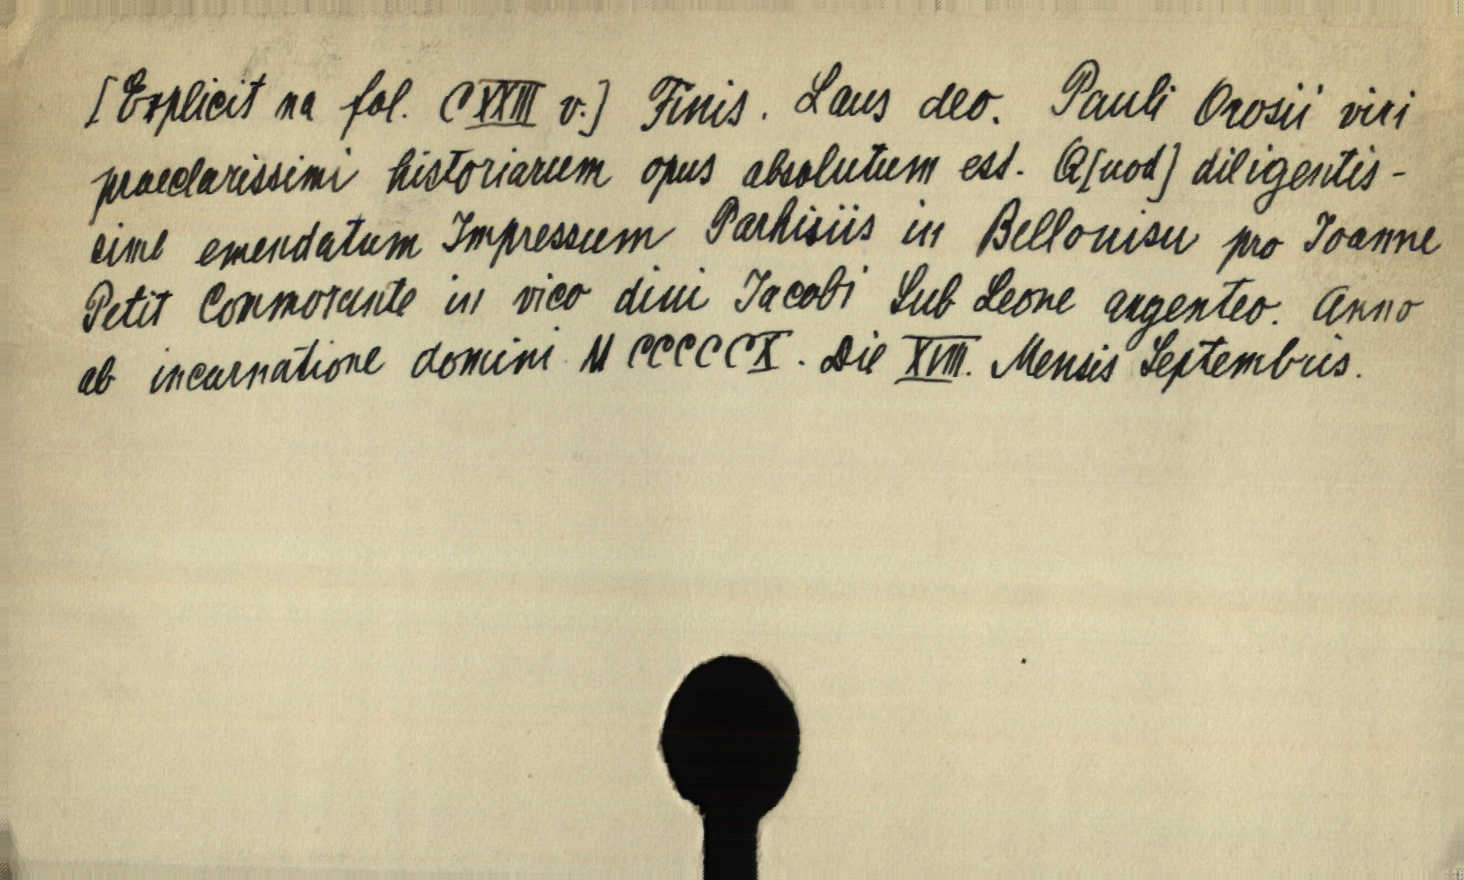 [Explicit na fol. CXXIII v.] Finis. Laus deo. Pauli Orosii viri
praeclarissimi historiarum opus absolutum est. Q[uod] diligentis-
sime emendatum Impressum Parhisiis in Bellouisu pro Ioanne
Petit Conmorante in vico diui Iacobi Sub Leone argenteo. Anno
ab incarnatione domini MCCCCCX. Die XVIII. Mensis Septembris.